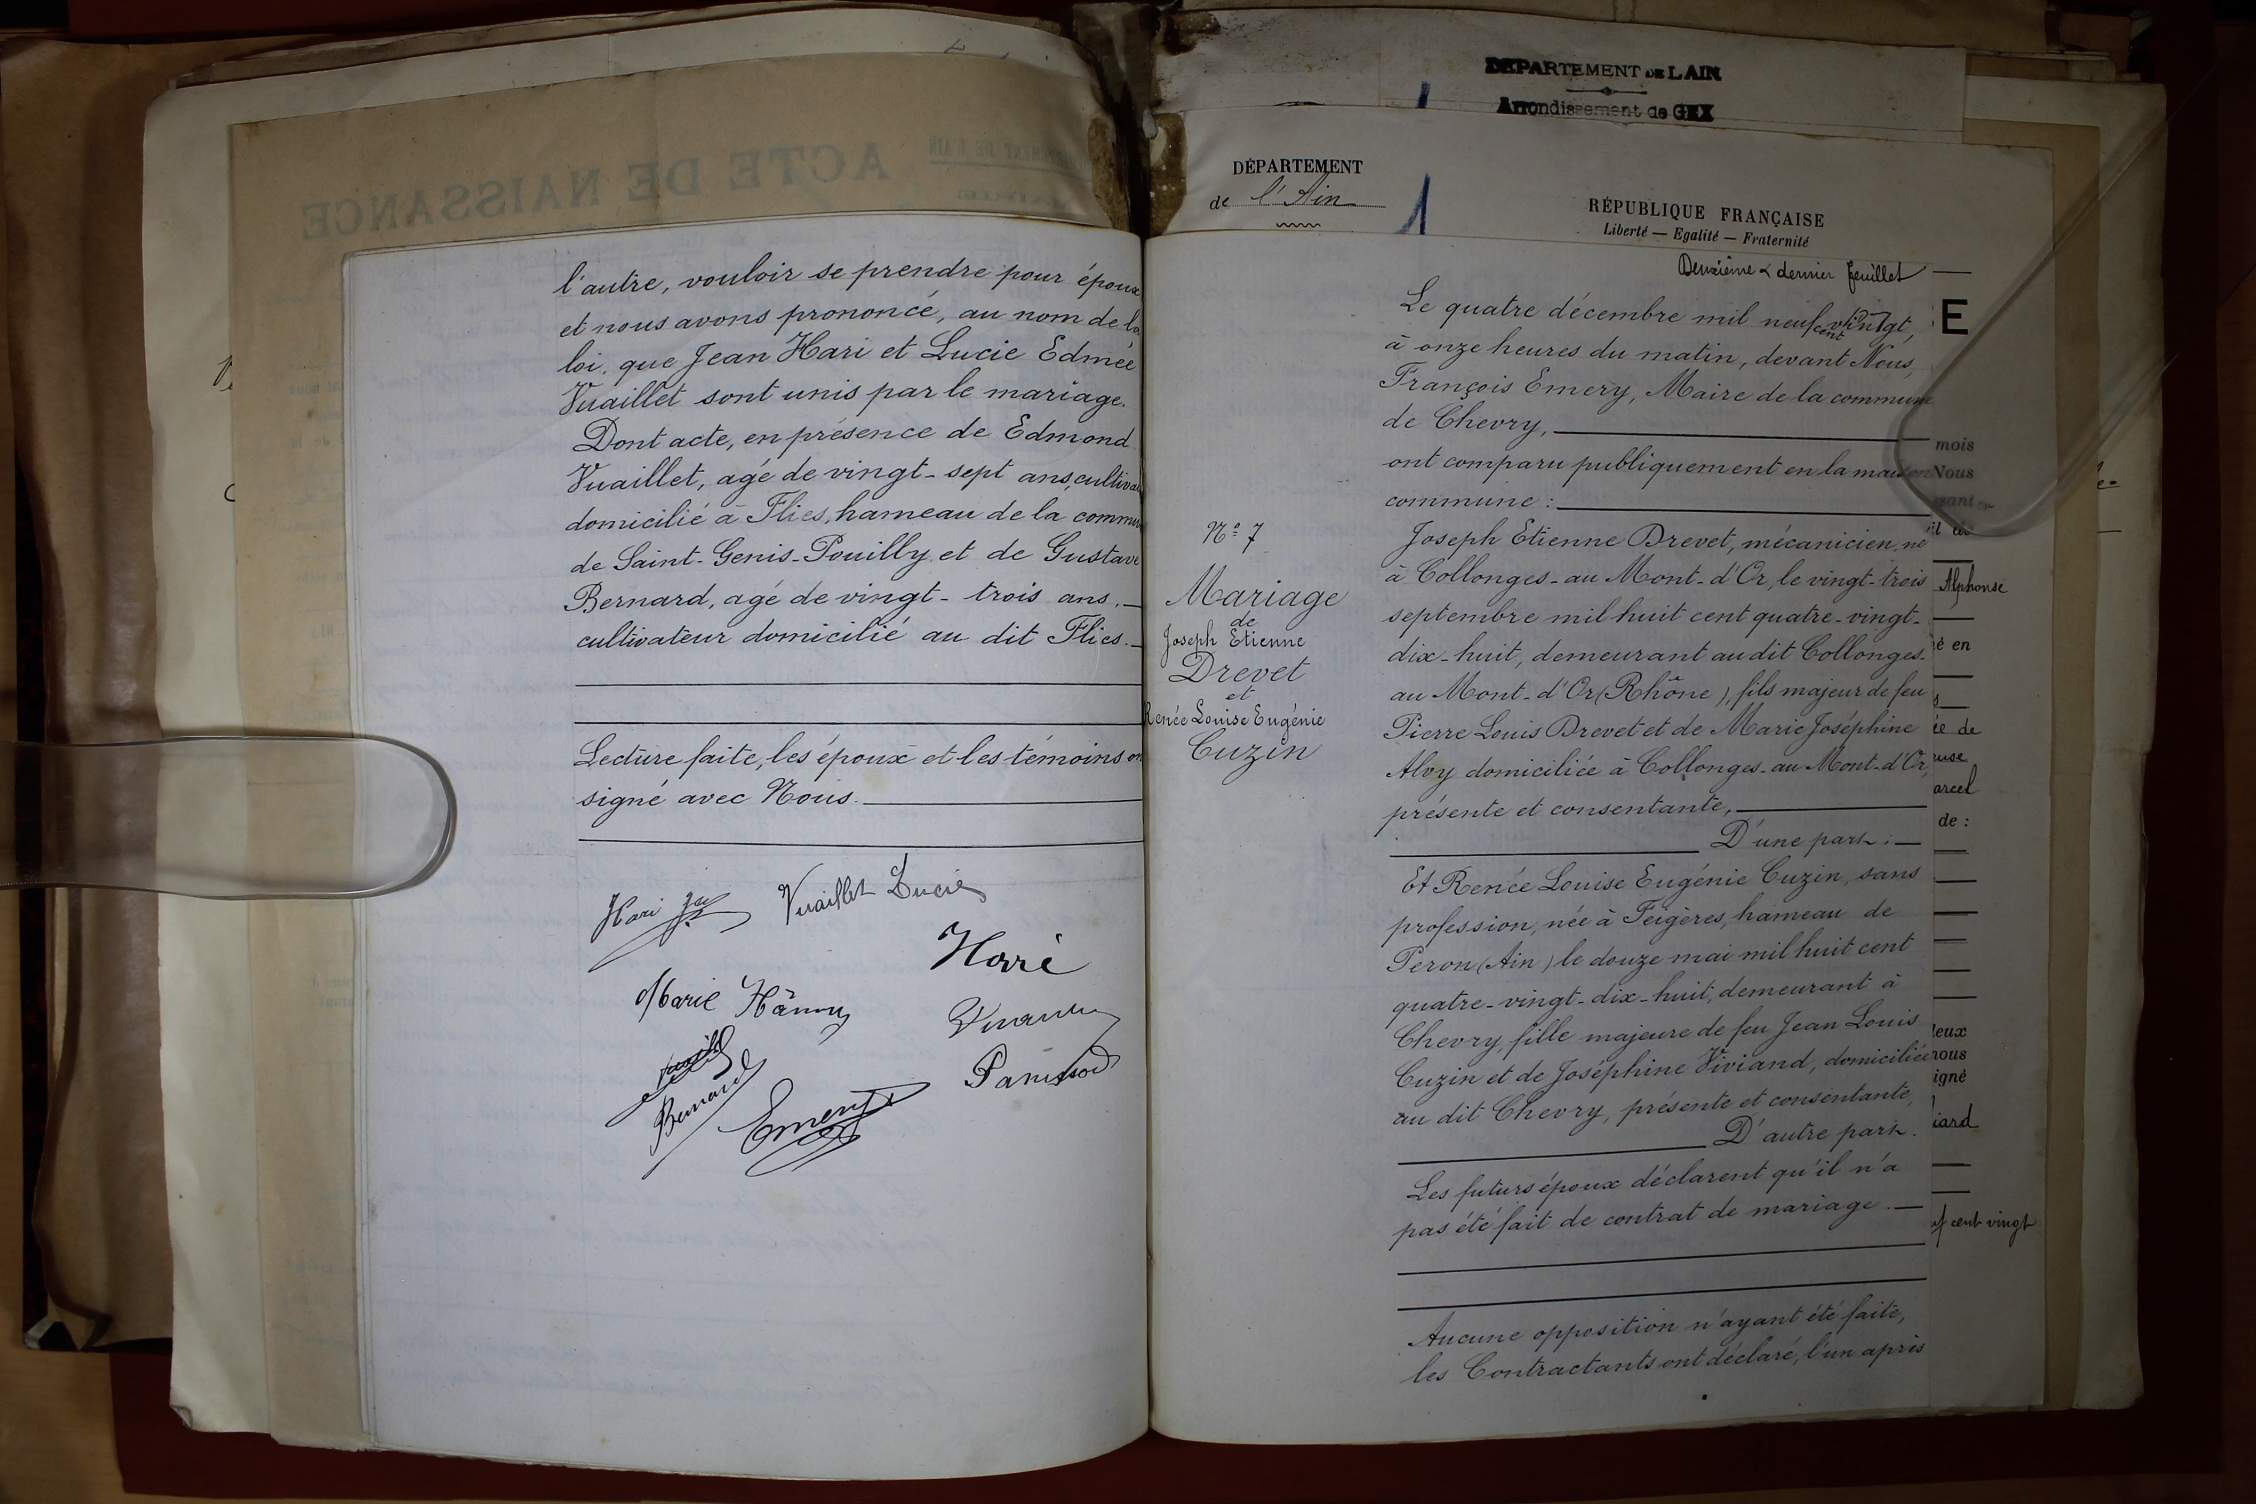 l'autre, vouloir se prendre pour époux
et nous avons prononcé, au nom de la
loi, que Jean Hari et Lucie Edmée
Vuaillet sont unis par le mariage.
Dont acte, en présence de Edmond
Vuaillet, agé de vingt-sept ans, cultiva
domicilié à Flies, hameau de la commun
de Saint-Genis-Pouilly et de Gustave
Bernard, agé de vingt-trois ans,
cultivateur domicilié au dit Flies.
Lecture faite, les époux et les témoins on
signé avec Nous.
Hari Jn Vuaillet Lucie
Marie Hänny
Bernard
Emery
ACTE DE NAISSANCE
DEPARTEMENT DE L'AIN
Arrondissement de GEX
DÉPARTEMENT
de l'Ain
1
RÉPUBLIQUE FRANÇAISE
Liberté — Egalité — Fraternité
Deuxième & dernier feuillet
Le quatre décembre mil neuf cent vingt,
à onze heures du matin, devant Nous,
François Emery, Maire de la commune
de Chevry,
ont comparu publiquement en la maison
commune :
N° 7
Mariage
de
Joseph Etienne
Drevet
et
Renée Louise Eugénie
Cuzin
Joseph Etienne Drevet, mécanicien, né
à Collonges-au Mont-d'Or, le vingt-trois
septembre mil huit cent quatre-vingt-
dix-huit, demeurant au dit Collonges-
au Mont-d'Or (Rhône), fils majeur de feu
Pierre Louis Drevet et de Marie Joséphine
Alvy domiciliée à Collonges-au Mont-d'Or,
présente et consentante,
D'une part ;
Et Renée Louise Eugénie Cuzin, sans
profession, née à Feigères, hameau de
Peron (Ain) le douze mai mil huit cent
quatre-vingt-dix-huit, demeurant à
Chevry, fille majeure de feu Jean Louis
Cuzin et de Joséphine Viviand, domiciliée
au dit Chevry, présente et consentante,
D'autre part.
Les futurs époux déclarent qu'il n'a
pas été fait de contrat de mariage.
Aucune opposition n'ayant été faite,
les Contractants ont déclaré, l'un après
E
mois
Nous
Alphonse
é en
ée de
arcel
de :
eux
nous
igné
iard
cent vingt